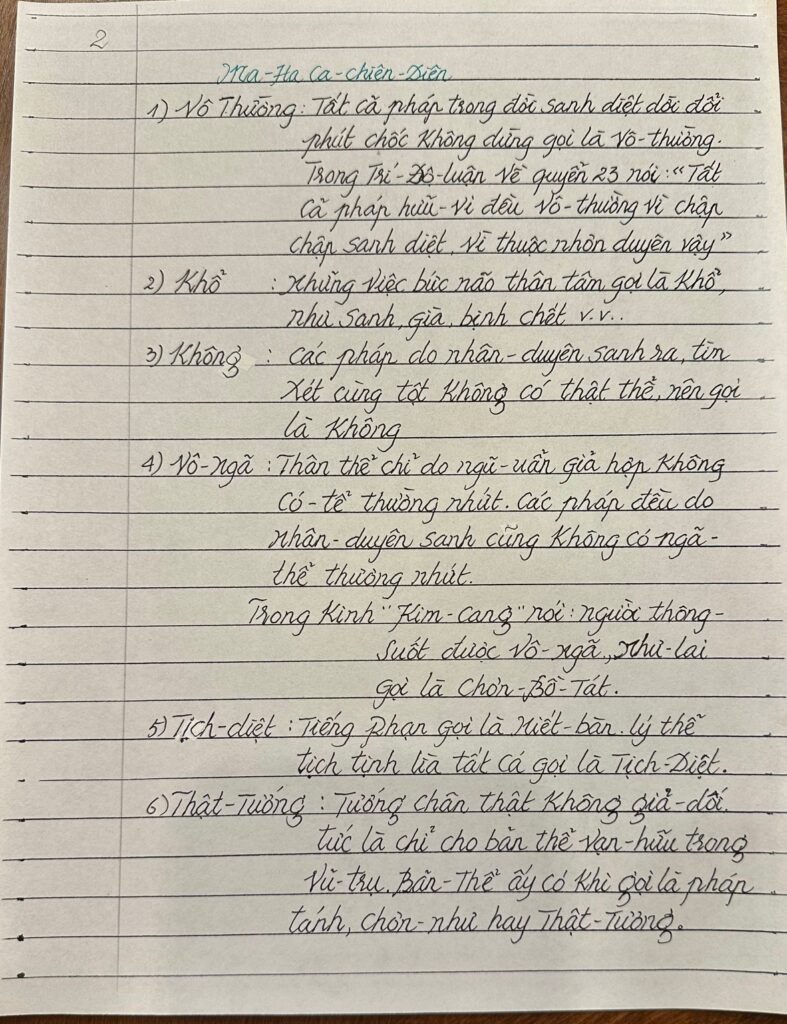 2
Ma-Ha Ca-chiên-Diên
1) Vô Thường : Tất cả pháp trong đời sanh diệt dời đổi
phút chốc không dừng gọi là vô-thường.
Trong Trí-Độ-luận Về quyển 23 nói : "Tất
cả pháp hữu-vi đều vô-thường vì chập
chập sanh diệt, vì thuộc nhơn duyên vậy"
2) Khổ : Những việc bức não thân tâm gọi là Khổ,
như sanh, già, bịnh chết v.v..
3) Không : các pháp do nhân-duyên sanh ra, tìm
Xét cùng tột không có thật thể, nên gọi
là không
4) Vô-ngã : Thân thể chỉ do ngũ-uẩn giả hợp không
có-tể thường nhứt. Các pháp đều do
nhân-duyên sanh cũng không có ngã-
thể thường nhứt.
Trong Kinh "Kim-Cang" nói : người thông-
suốt được vô-ngã, Như-lai
gọi là Chơn-Bồ-Tát.
5) Tịch-diệt : Tiếng Phạn gọi là Niết-bàn. lý thể
tịch tịnh lìa tất cả gọi là Tịch-Diệt.
6) Thật-Tướng : Tướng chân thật không giả-dối.
tức là chỉ cho bản thể vạn-hữu trong
Vũ-trụ. Bản-Thể ấy có khi gọi là pháp
tánh, chơn-như hay Thật-Tướng.